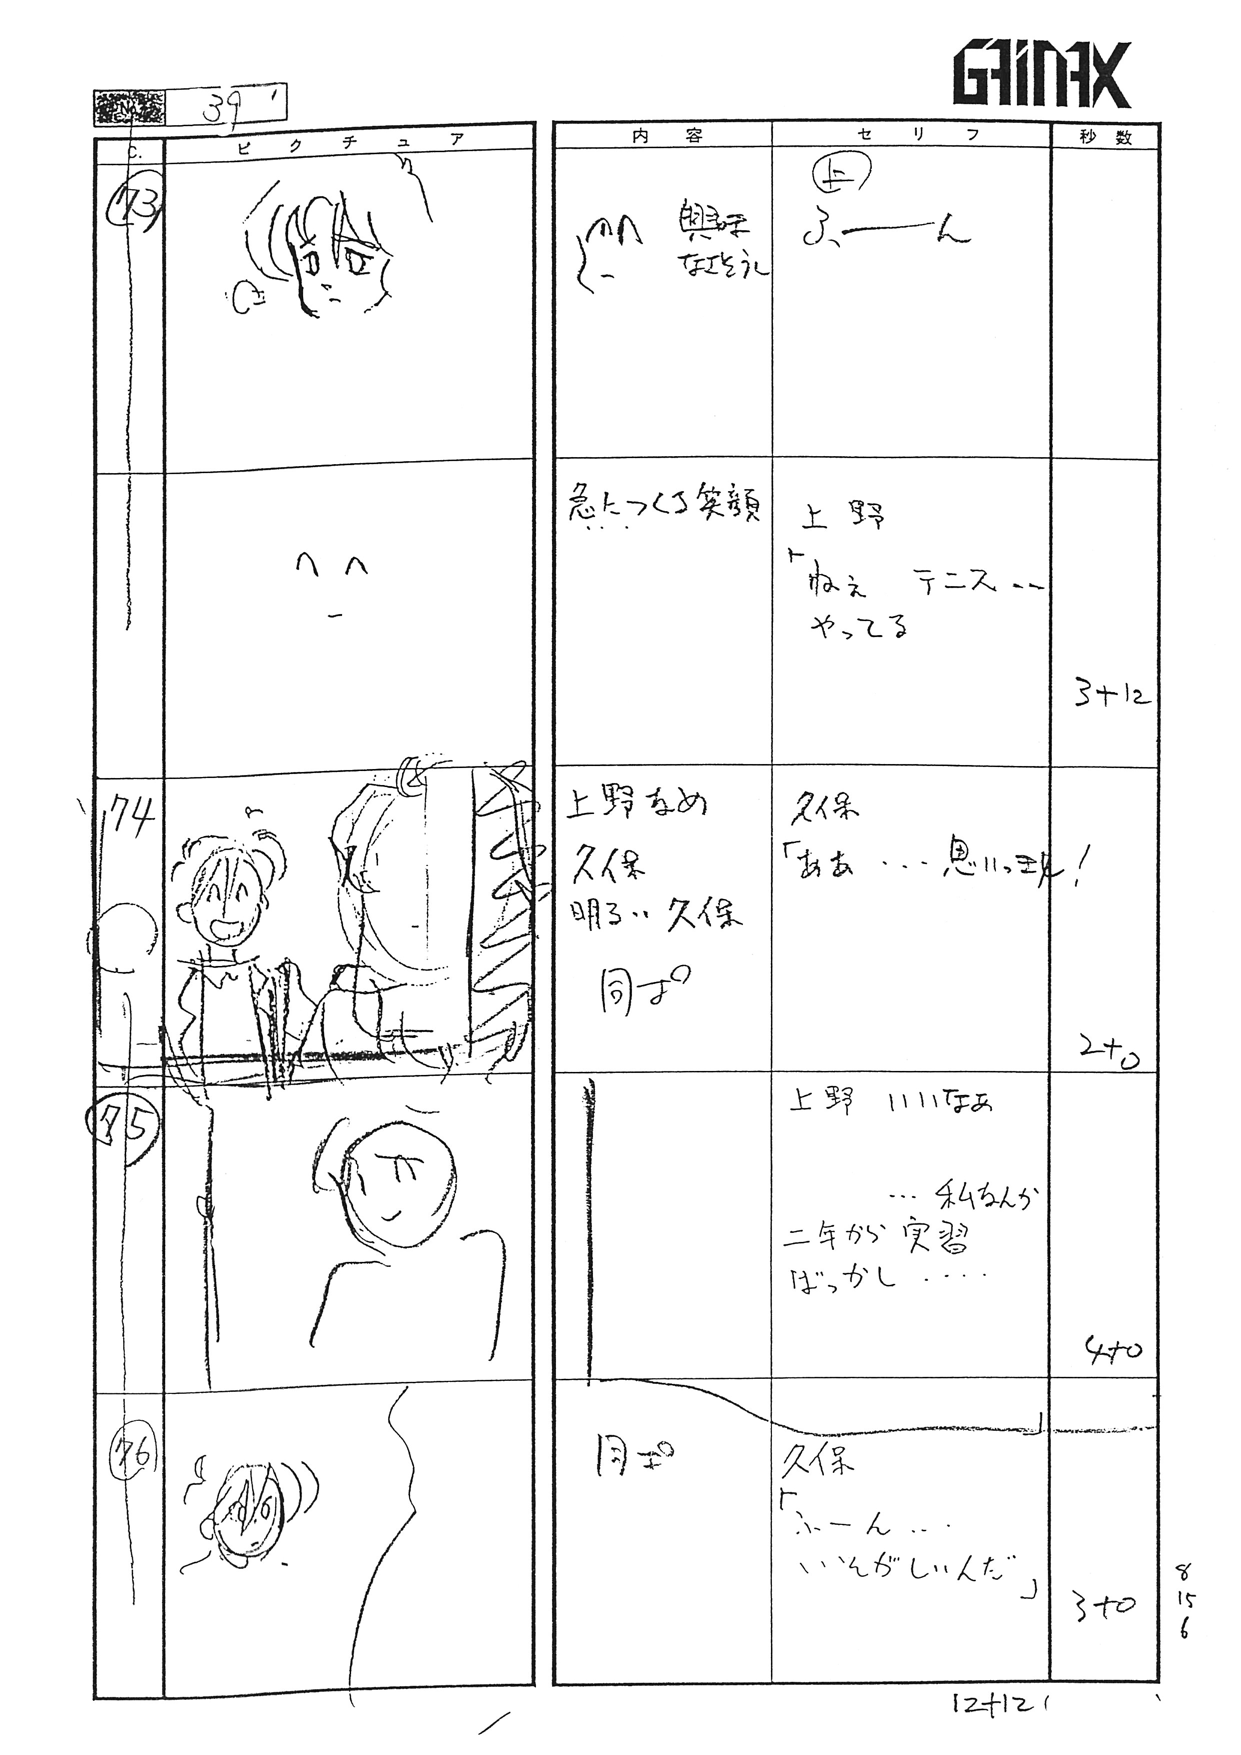 GAINAX
No. 39
C. ピクチュア 内容 セリフ 秒数
73
興味
なさそうに
上
ふーーん
急につくる笑顔
上野
「ねぇ テニス‥
やってる
3+12
74
上野なめ
久保
明るい久保
同ポ
久保
「ああ ‥‥ 思いっきし!
2+0
75
上野 いいなぁ
… 私なんか
二年から実習
ばっかし ‥‥
4+0
」
76
同ポ
久保
「ふーん…
いそがしいんだ」
3+0
8
15
6
12+12